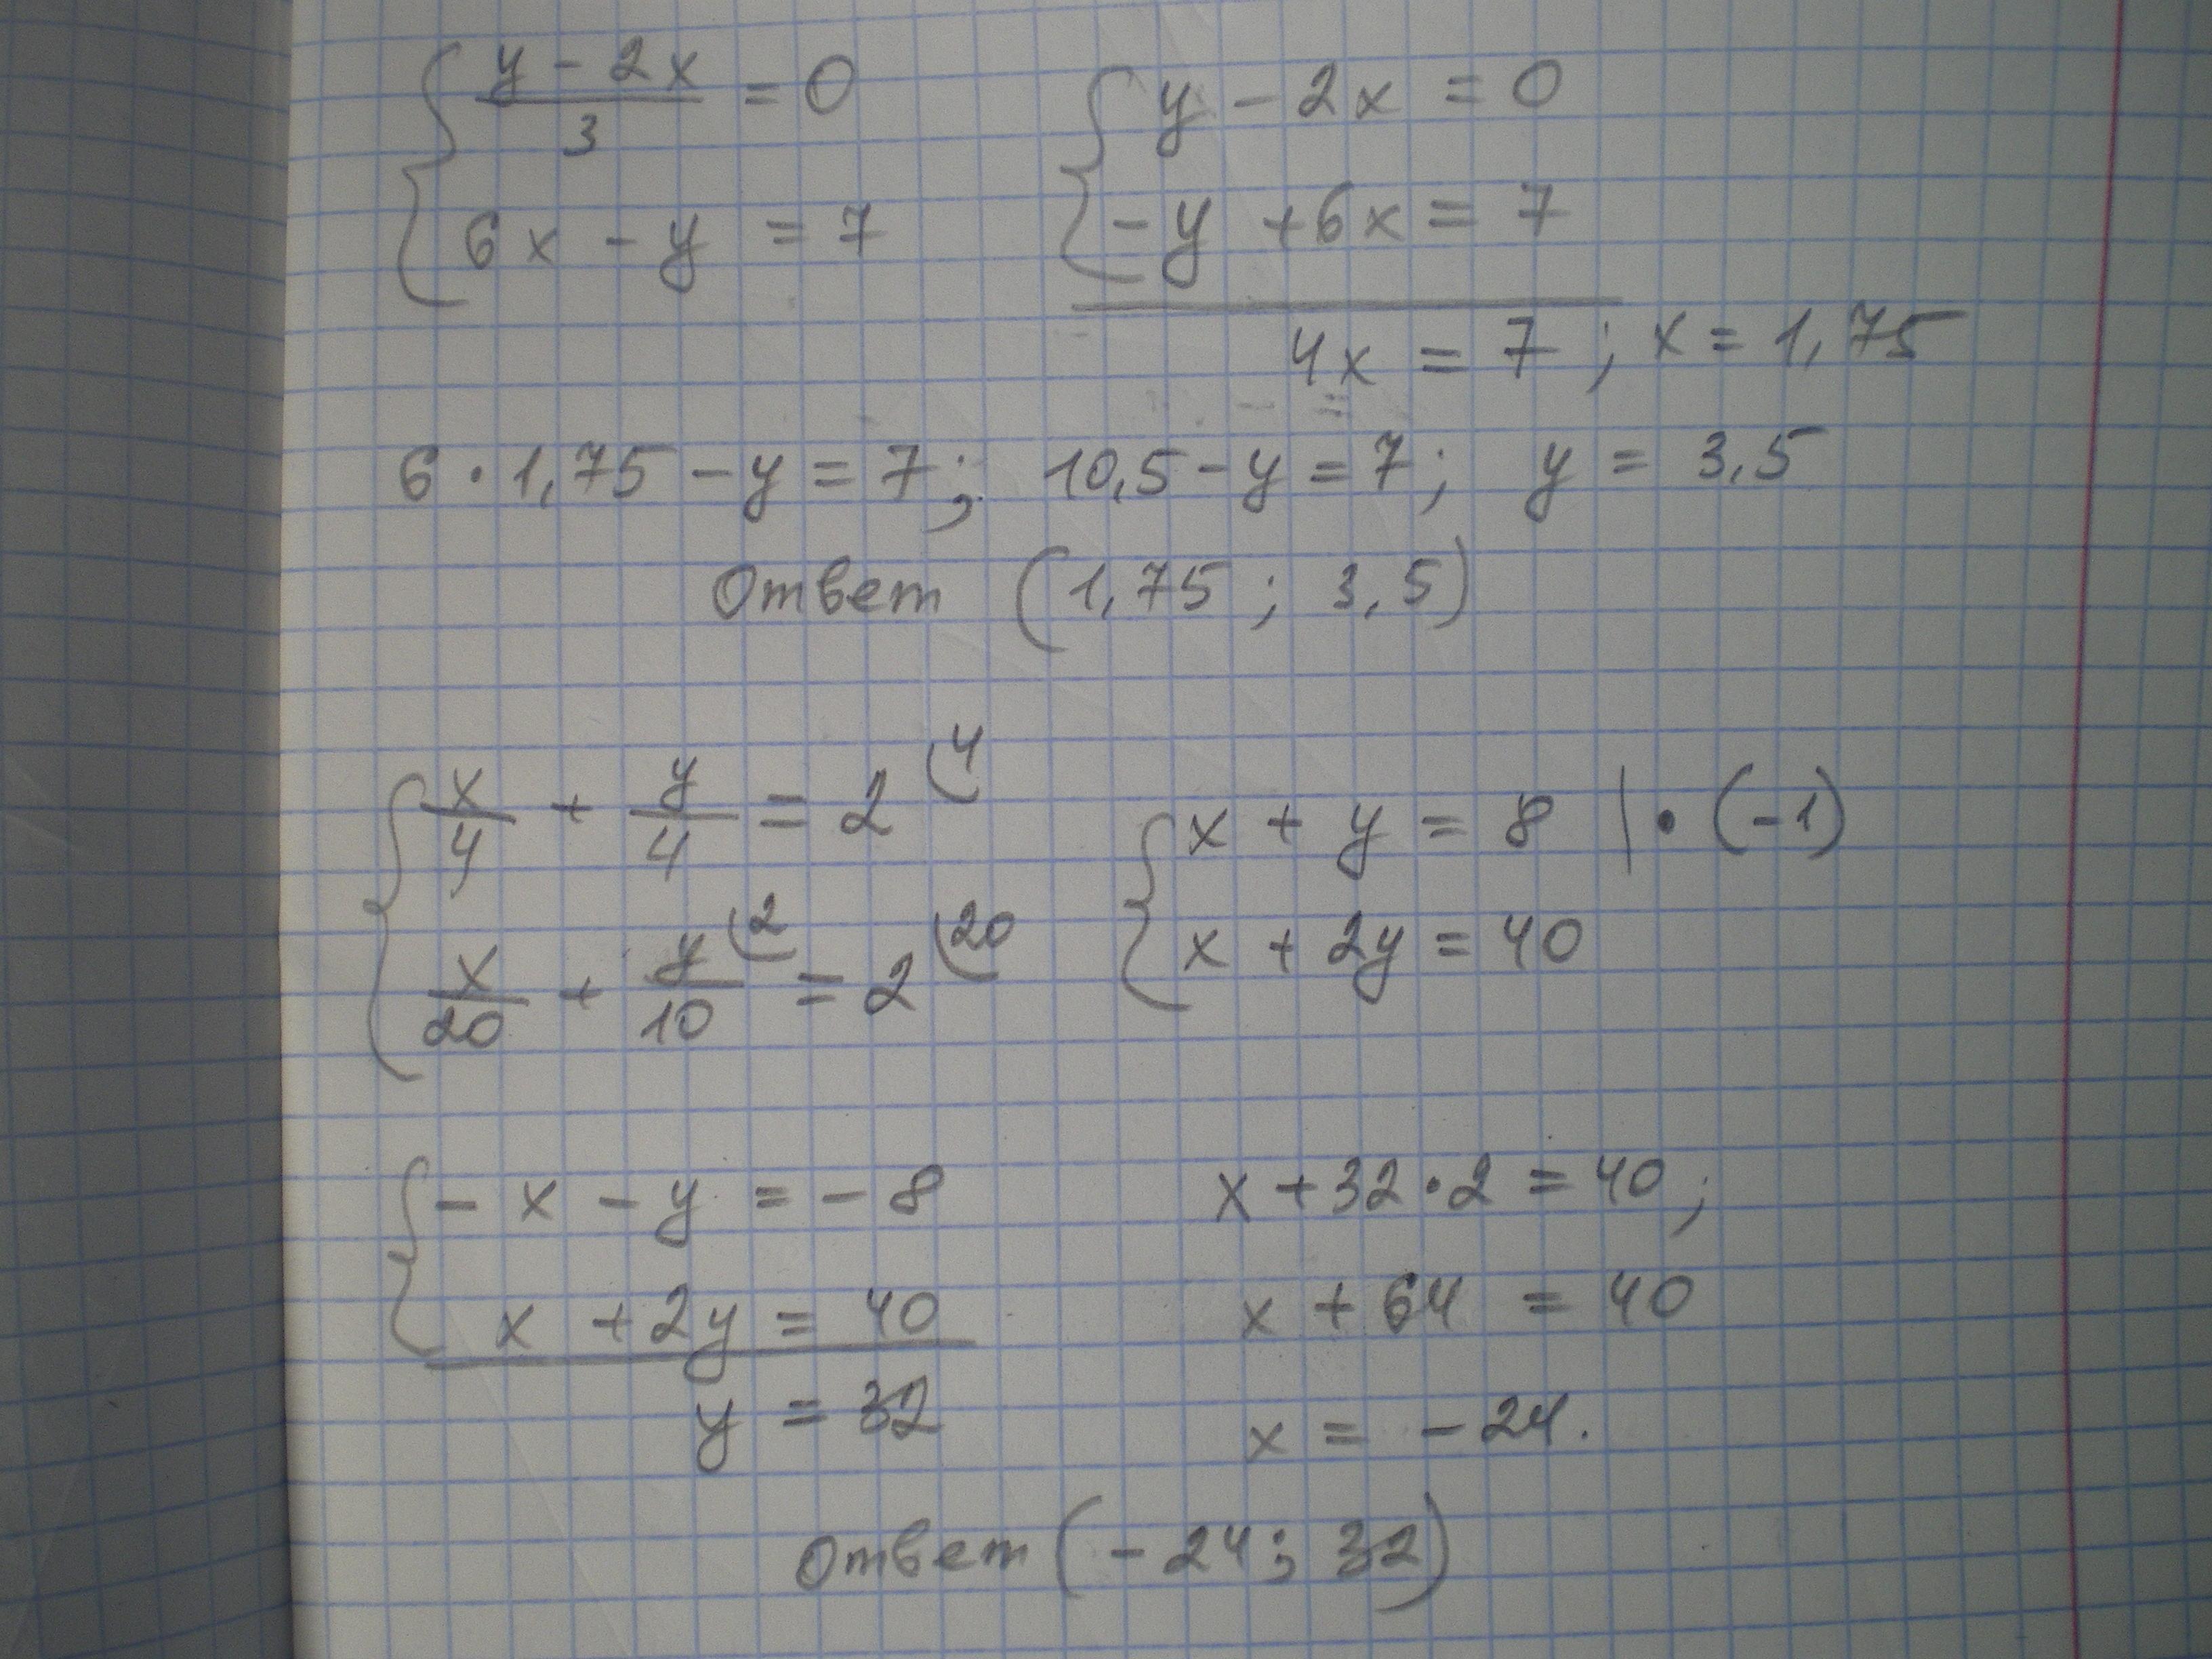 { (y - 2x)/3 = 0
6x - y = 7
{ y - 2x = 0
-y + 6x = 7
4x = 7 ; x = 1,75
6 · 1,75 - y = 7 ; 10,5 - y = 7 ; y = 3,5
Ответ (1,75 ; 3,5)
{ x/4 + y/4 = 2 (4
x/20 + y/10 (2 = 2 (20
{ x + y = 8 | · (-1)
x + 2y = 40
{ - x - y = - 8
x + 2y = 40
y = 32
x + 32 · 2 = 40 ;
x + 64 = 40
x = - 24.
Ответ (- 24 ; 32)